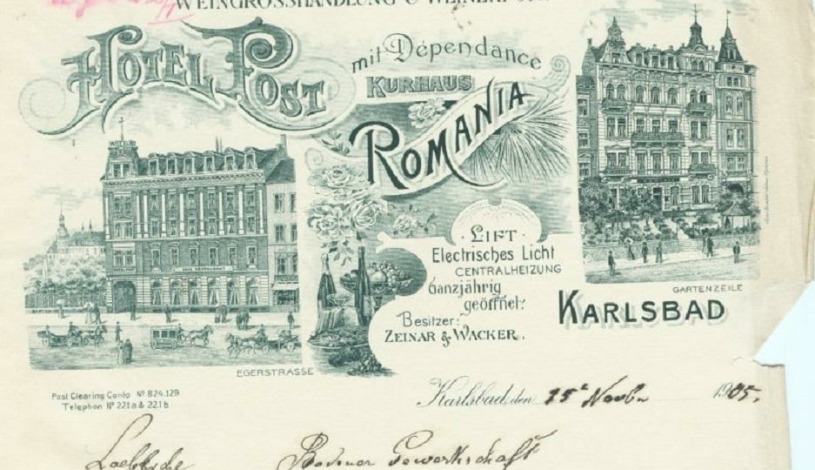 WEINGROSSHANDLUNG
HOTEL POST
mit Dépendance
KURHAUS
ROMANIA
LIFT
Electrisches Licht
CENTRALHEIZUNG
Ganzjährig
geöffnet.
Besitzer:
ZEINAR & WACKER.
EGERSTRASSE
GARTENZEILE
KARLSBAD
Post Clearing Conto Nº 824.129
Telephon Nº 221a & 221b
Karlsbad, den 15t Novbr 1905.
Löbliche Gewerkschaft